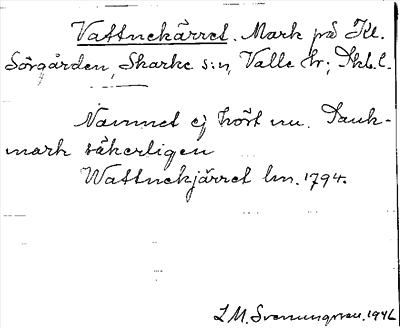 Vattnekärret. Mark på Kl.
Sörgården, Skarke s:n, Valle hr; Skb.l.
Namnet ej hört nu. Sank-
mark säkerligen
Wattnekjärret lm. 1794.
L M. Svenungsson. 1942